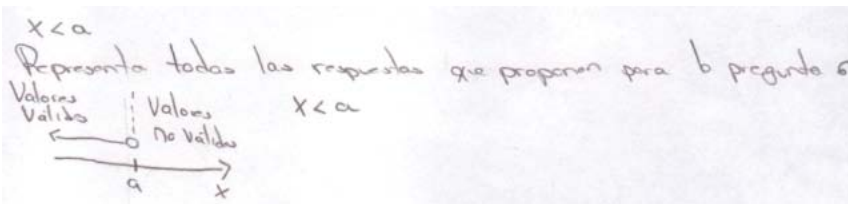 x < a
Representa todas las respuestas que proponen para b pregunta 6
Valores Valores x < a
Válido no válidos
a
x